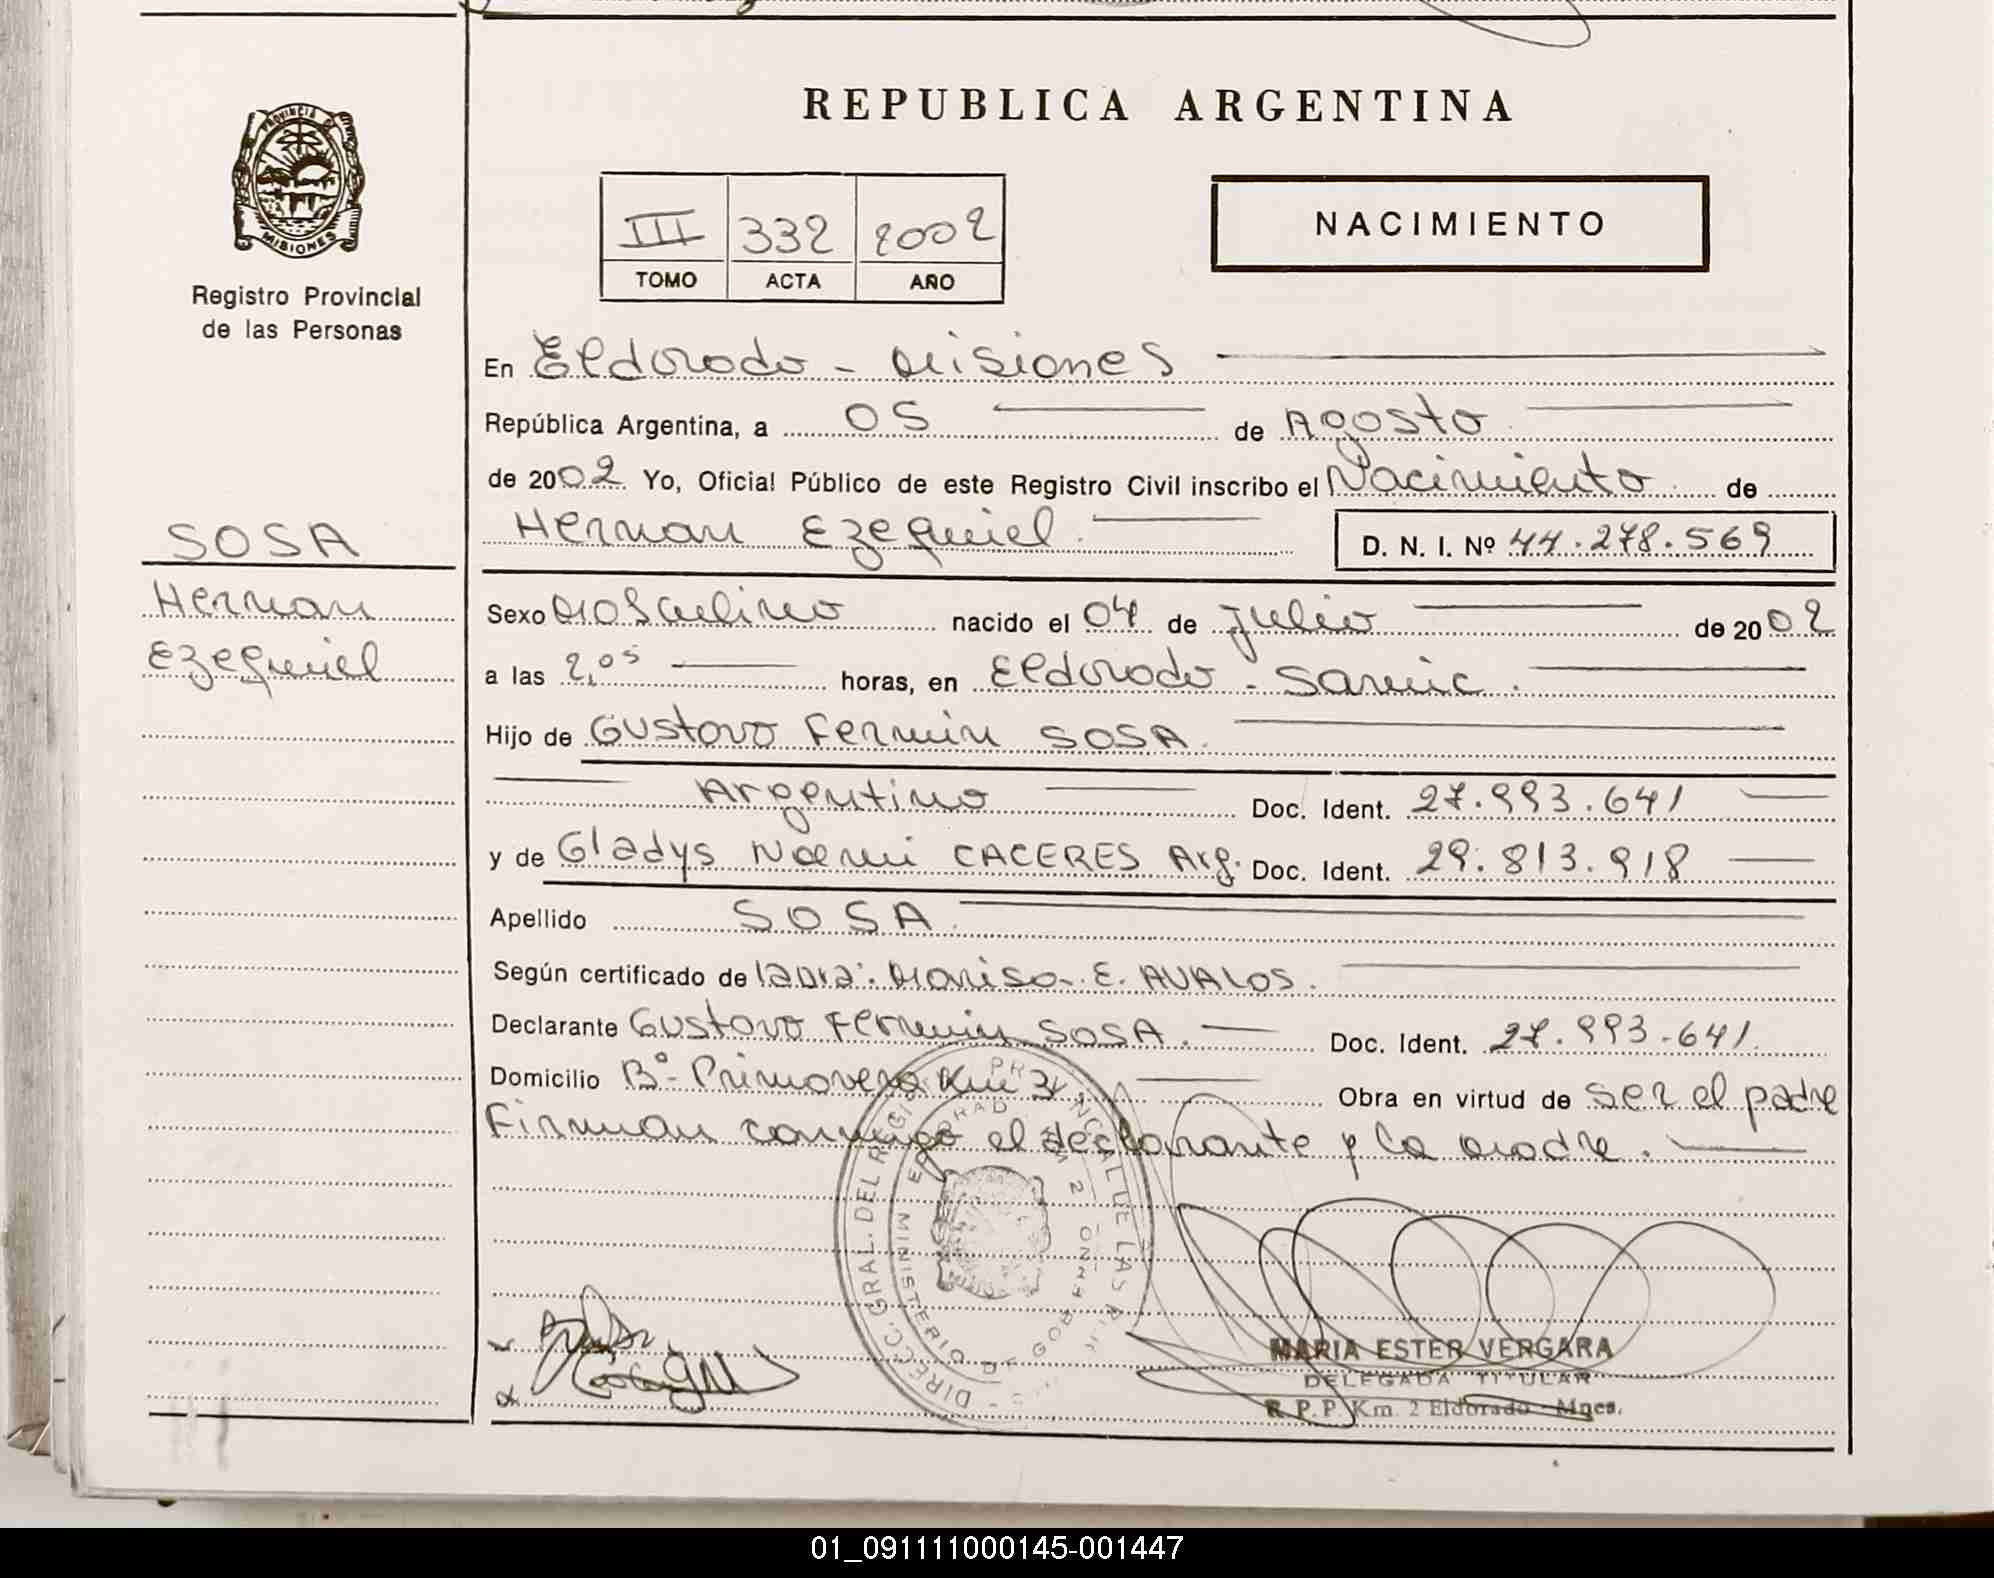 REPUBLICA ARGENTINA
PROVINCIA DE
MISIONES
Registro Provincial
de las Personas
III 332 2002
TOMO ACTA AÑO
NACIMIENTO
En Eldorado - Misiones
República Argentina, a 05 de Agosto
de 2002 Yo, Oficial Público de este Registro Civil inscribo el Nacimiento de
Hernan Ezequiel D. N. I. Nº 44.278.569
SOSA
Hernan
Ezequiel
Sexo Masculino nacido el 04 de Julio de 2002
a las 2,05 horas, en Eldorado - Samic.
Hijo de Gustavo Fermin SOSA.
Argentino Doc. Ident. 27.993.641
y de Gladys Noemi CACERES Arg. Doc. Ident. 29.813.918
Apellido SOSA.
Según certificado de Marisa E. AVALOS.
Declarante Gustavo Fermin SOSA. Doc. Ident. 27.993.641
Domicilio Bº Primavera Km Obra en virtud de ser el padre
Firman conmigo el declarante y la madre.
DIRECC. GRAL. DEL
MINISTERIO DE GOB
MARIA ESTER VERGARA
DELEGADA TITULAR
R. P. P. Km. 2 Eldorado - Mnes.
01_091111000145-001447